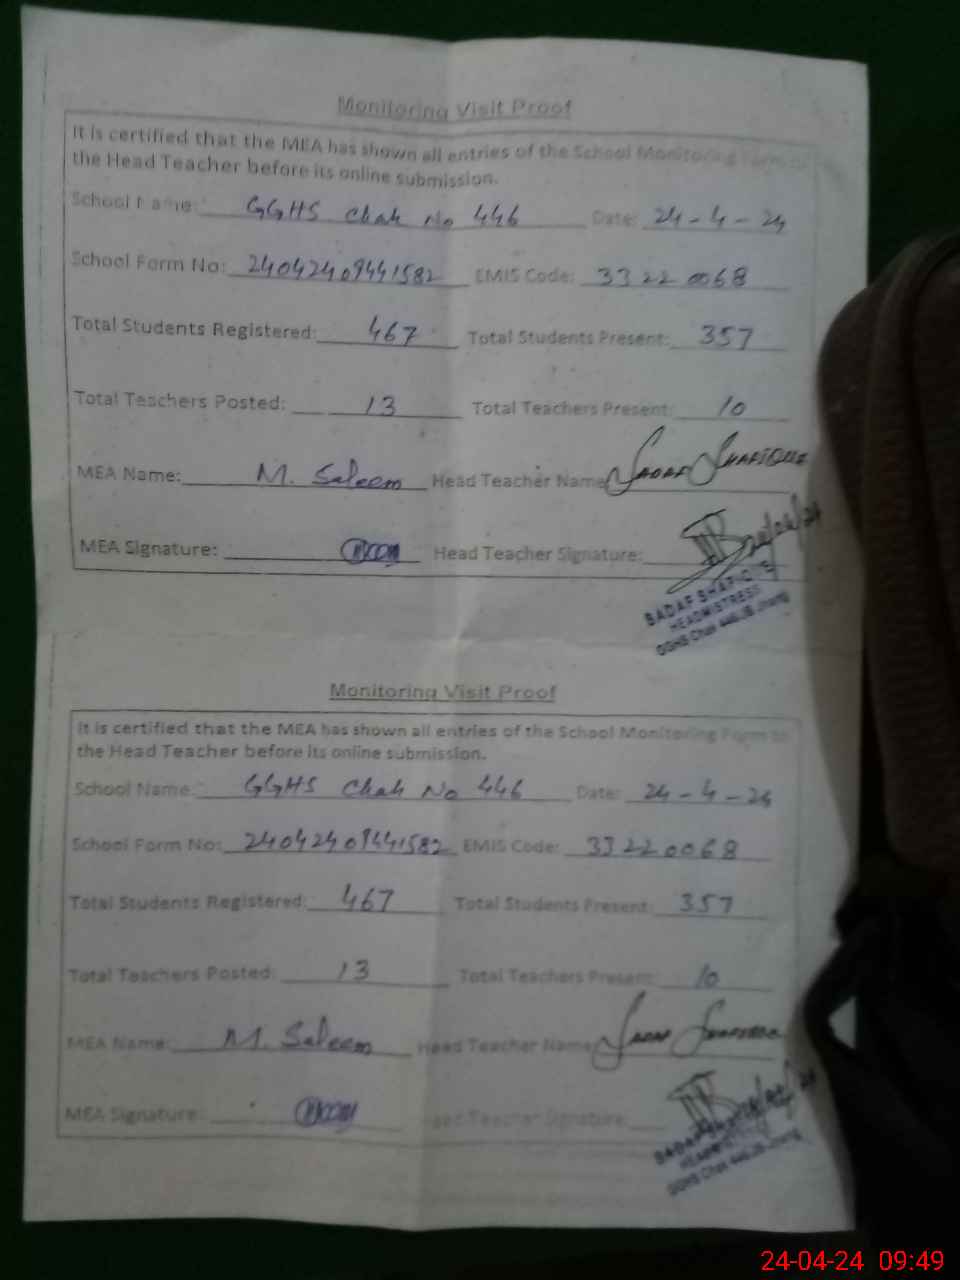 Monitoring Visit Proof
It is certified that the MEA has shown all entries of the School Monitoring Form to
the Head Teacher before its online submission.
School Name: GGHS Chak No 446 Date: 24-4-24
School Form No: 24042409441582 EMIS Code: 33220068
Total Students Registered: 467 Total Students Present: 357
Total Teachers Posted: 13 Total Teachers Present: 10
MEA Name: M. Saleem Head Teacher Name: SADAF SHAFIQUE
MEA Signature: Head Teacher Signature:
SADAF SHAFIQUE
HEADMISTRESS
GGHS Chak 446/JB Jhang
Monitoring Visit Proof
It is certified that the MEA has shown all entries of the School Monitoring Form to
the Head Teacher before its online submission.
School Name: GGHS Chak No 446 Date: 24-4-24
School Form No: 24042409441582 EMIS Code: 33220068
Total Students Registered: 467 Total Students Present: 357
Total Teachers Posted: 13 Total Teachers Present: 10
MEA Name: M. Saleem Head Teacher Name: SADAF SHAFIQUE
MEA Signature: Head Teacher Signature:
HEADMISTRESS
GGHS Chak 446/JB Jhang
24-04-24 09:49